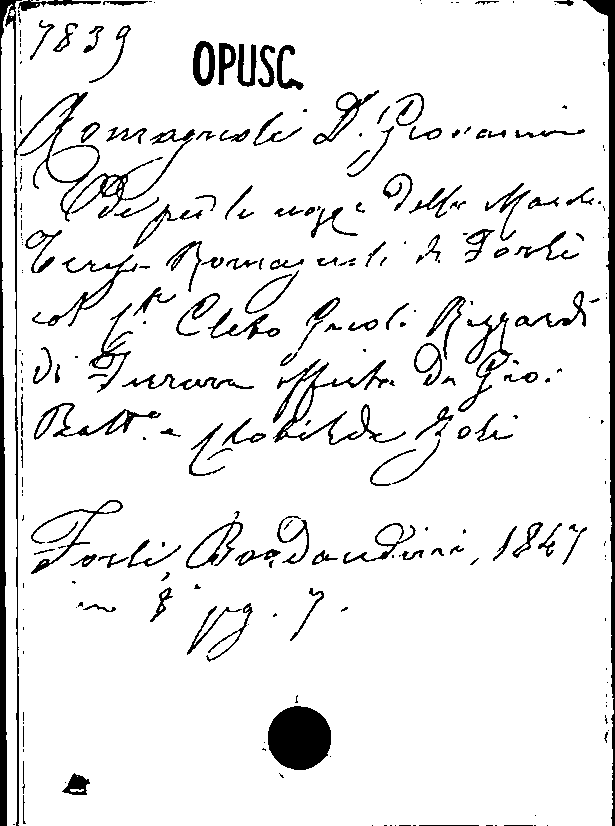 7839
OPUSC.
Romagnoli D. Giovanni
Ode per le nozze della March.
Teresa Romagnoli di Forlì
col Cleto Guioli Rizzardi
di Ferrara offerta da Gio.
Batt.a e Clotilde Zoli
Forli, Bordandini, 1847
in 8° pg. 7.